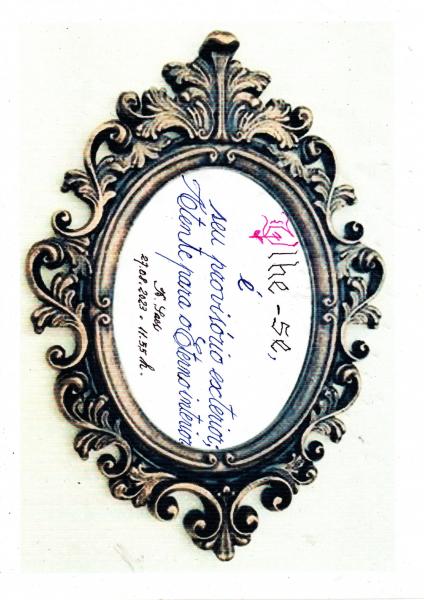 Olhe-se,
é
seu provisório exterior,
Atente para o Eterno interior.
27.08.2023 - 11:55 h.